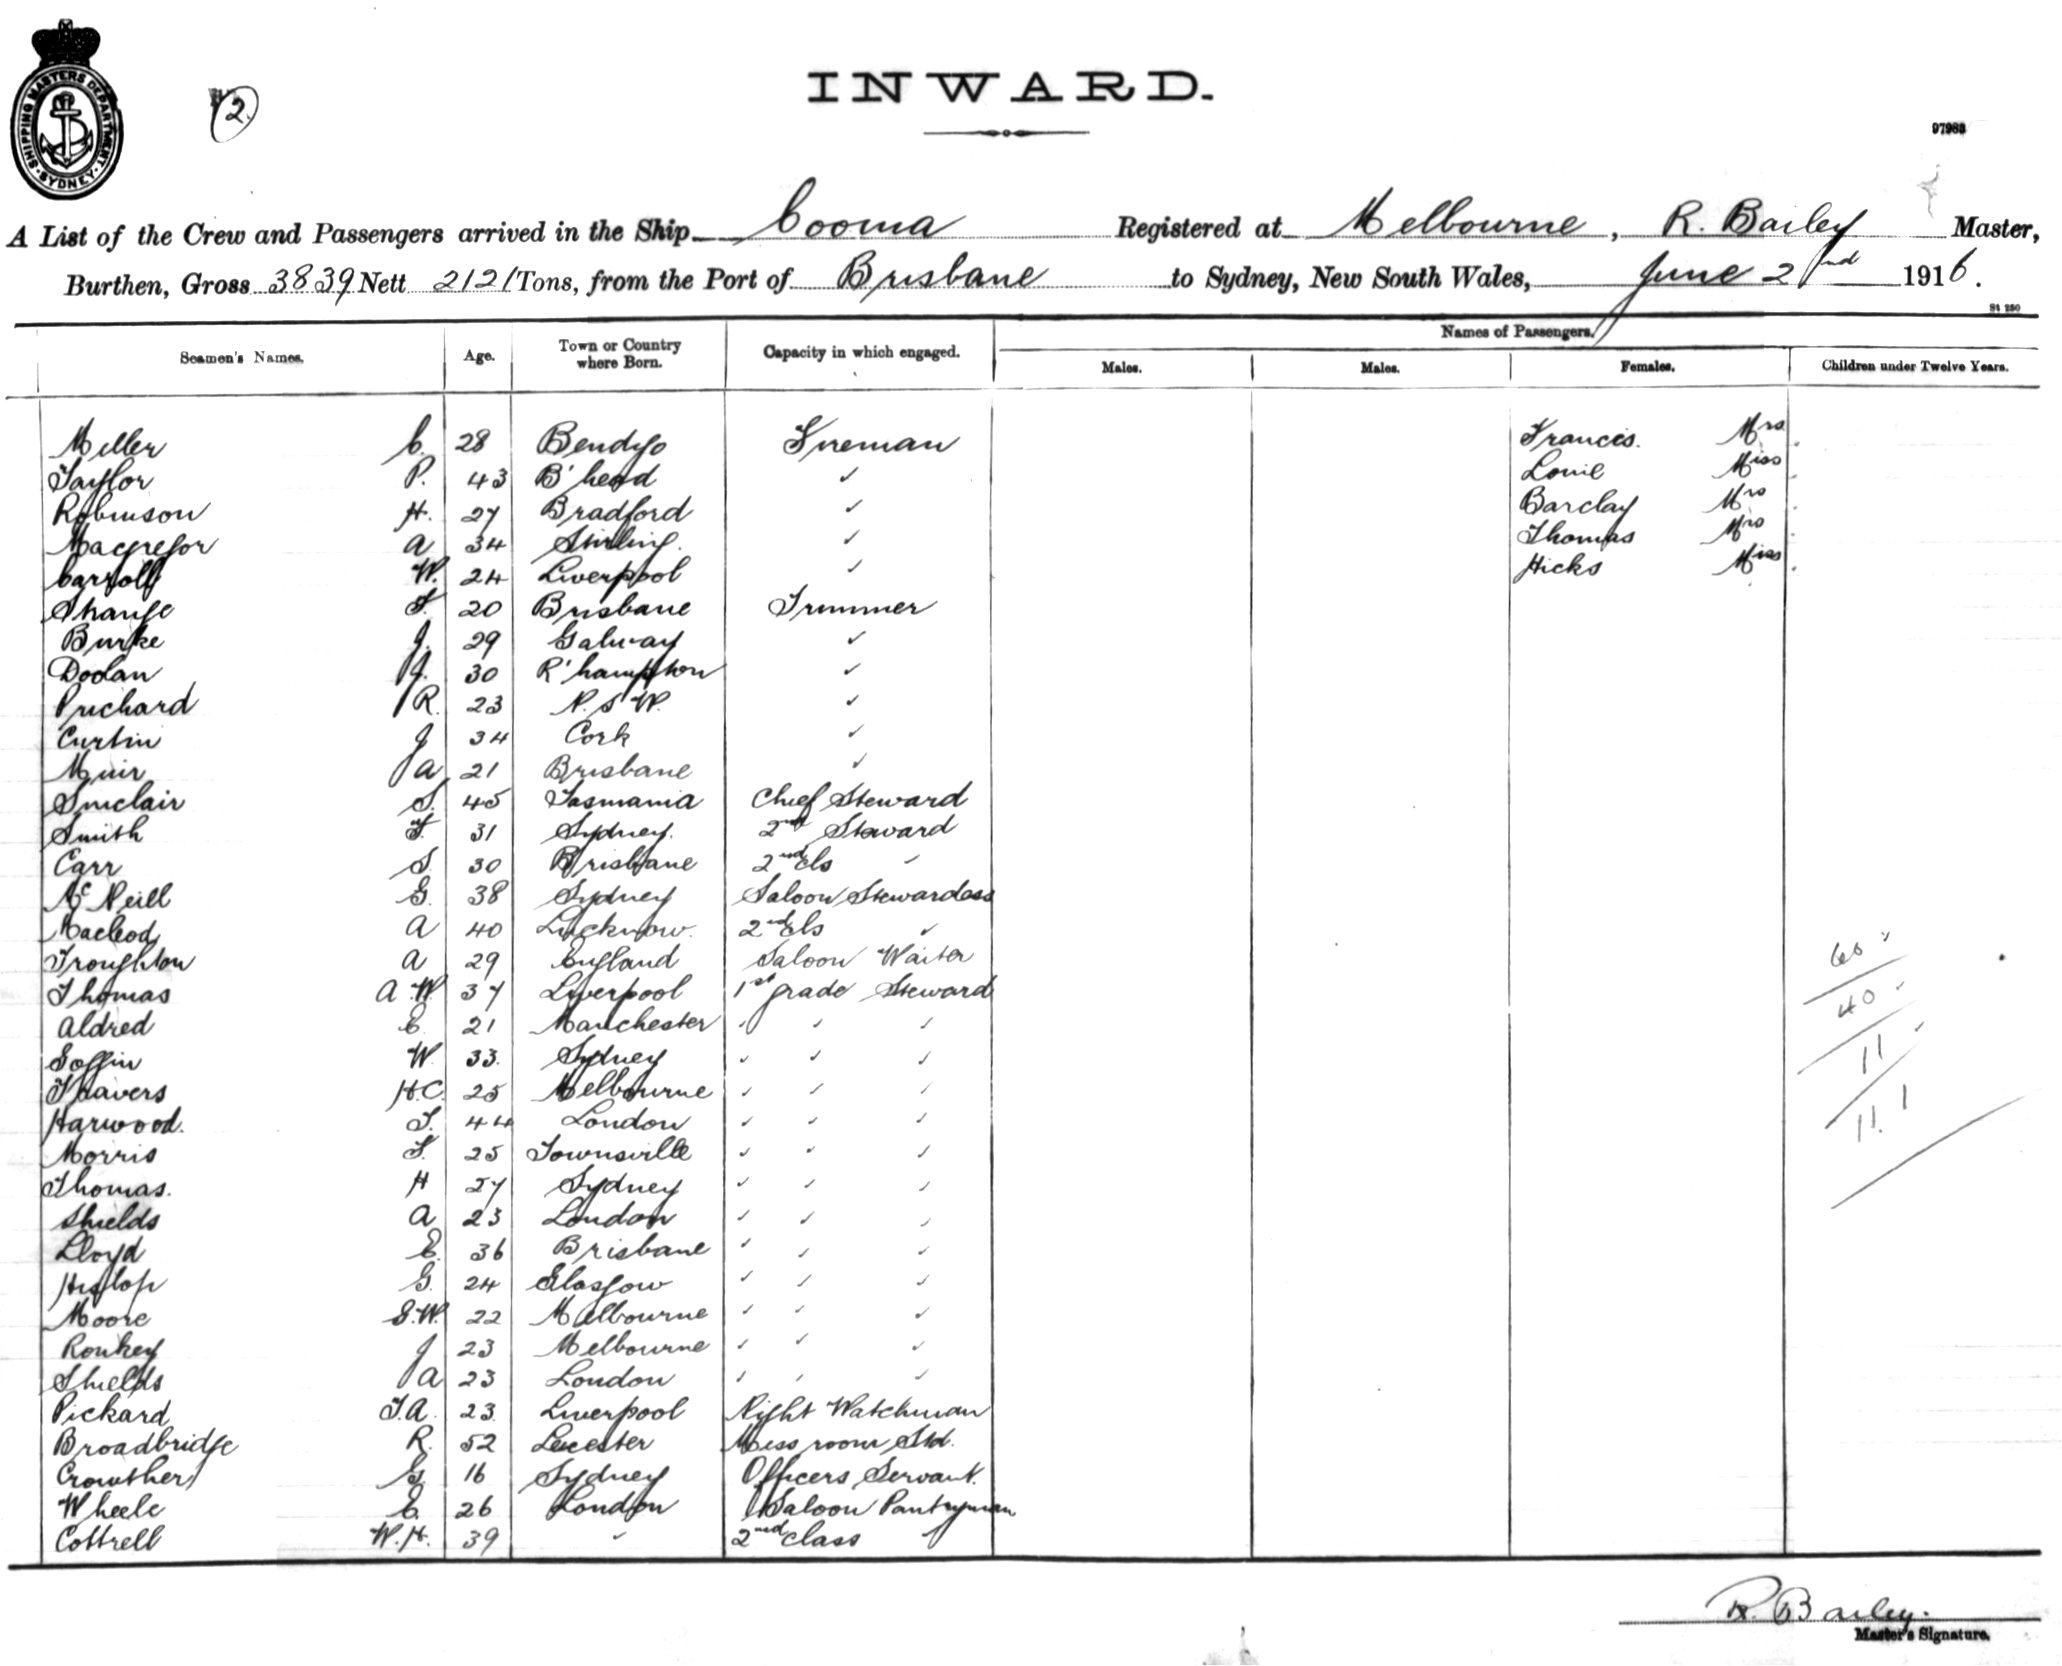 SHIPPING MASTERS DEPARTMENT. SYDNEY.
2.
INWARD.
97983
A List of the Crew and Passengers arrived in the Ship Cooma Registered at Melbourne, R. Bailey Master,
Burthen, Gross 3839 Nett 2121 Tons, from the Port of Brisbane to Sydney, New South Wales, June 2nd 1916.
St 250
Seamen's Names. Age. Town or Country where Born. Capacity in which engaged. Names of Passengers.
Males. Males. Females. Children under Twelve Years.
Miller C. 28 Bendigo Fireman Francis. Mrs
Taylor P. 43 B'head ✓ Louie Miss
Robinson H. 27 Bradford ✓ Barclay Mrs
Macgregor A 34 Stirling. ✓ Thomas Mrs
Carroll W. 24 Liverpool ✓ Hicks Miss
Strange F. 20 Brisbane Trimmer
Burke J. 29 Galway ✓
Doolan J. 30 R'hampton ✓
Prichard R. 23 N.S.W. ✓
Curtin J 34 Cork ✓
Muir A 21 Brisbane ✓
Sinclair S. 45 Tasmania Chief Steward
Smith F. 31 Sydney. 2nd Steward
Carr S. 30 Brisbane 2nd Cls ✓
McNeill G. 38 Sydney Saloon Stewardess
Macleod A 40 Lucknow. 2nd Cls ✓
Troughton A 29 England Saloon Waiter
Thomas A.W. 37 Liverpool 1st grade Steward
Aldred E. 21 Manchester ✓ ✓ ✓
Goffin W. 33. Sydney ✓ ✓ ✓
Travers H.C. 25 Melbourne ✓ ✓ ✓
Harwood. T. 44 London ✓ ✓ ✓
Morris F. 25 Townsville ✓ ✓ ✓
Thomas. H 27 Sydney ✓ ✓ ✓
Shields A 23 London ✓ ✓ ✓
Lloyd E. 36 Brisbane ✓ ✓ ✓
Hislop G. 24 Glasgow ✓ ✓ ✓
Moore S.W. 22 Melbourne ✓ ✓ ✓
Ronkey J 23 Melbourne ✓ ✓ ✓
Shields A 23 London ✓ ✓ ✓
Pickard T.A. 23. Liverpool Night Watchman
Broadbridge R. 52 Leicester Mess room Std.
Crowther G. 16 Sydney Officers Servant.
Wheele C. 26 London Saloon Pantryman
Cottrell W.H. 39 ✓ 2nd class ✓
60 ✓
40 ✓
11 ✓
1
11.
R. Bailey.
Master's Signature.